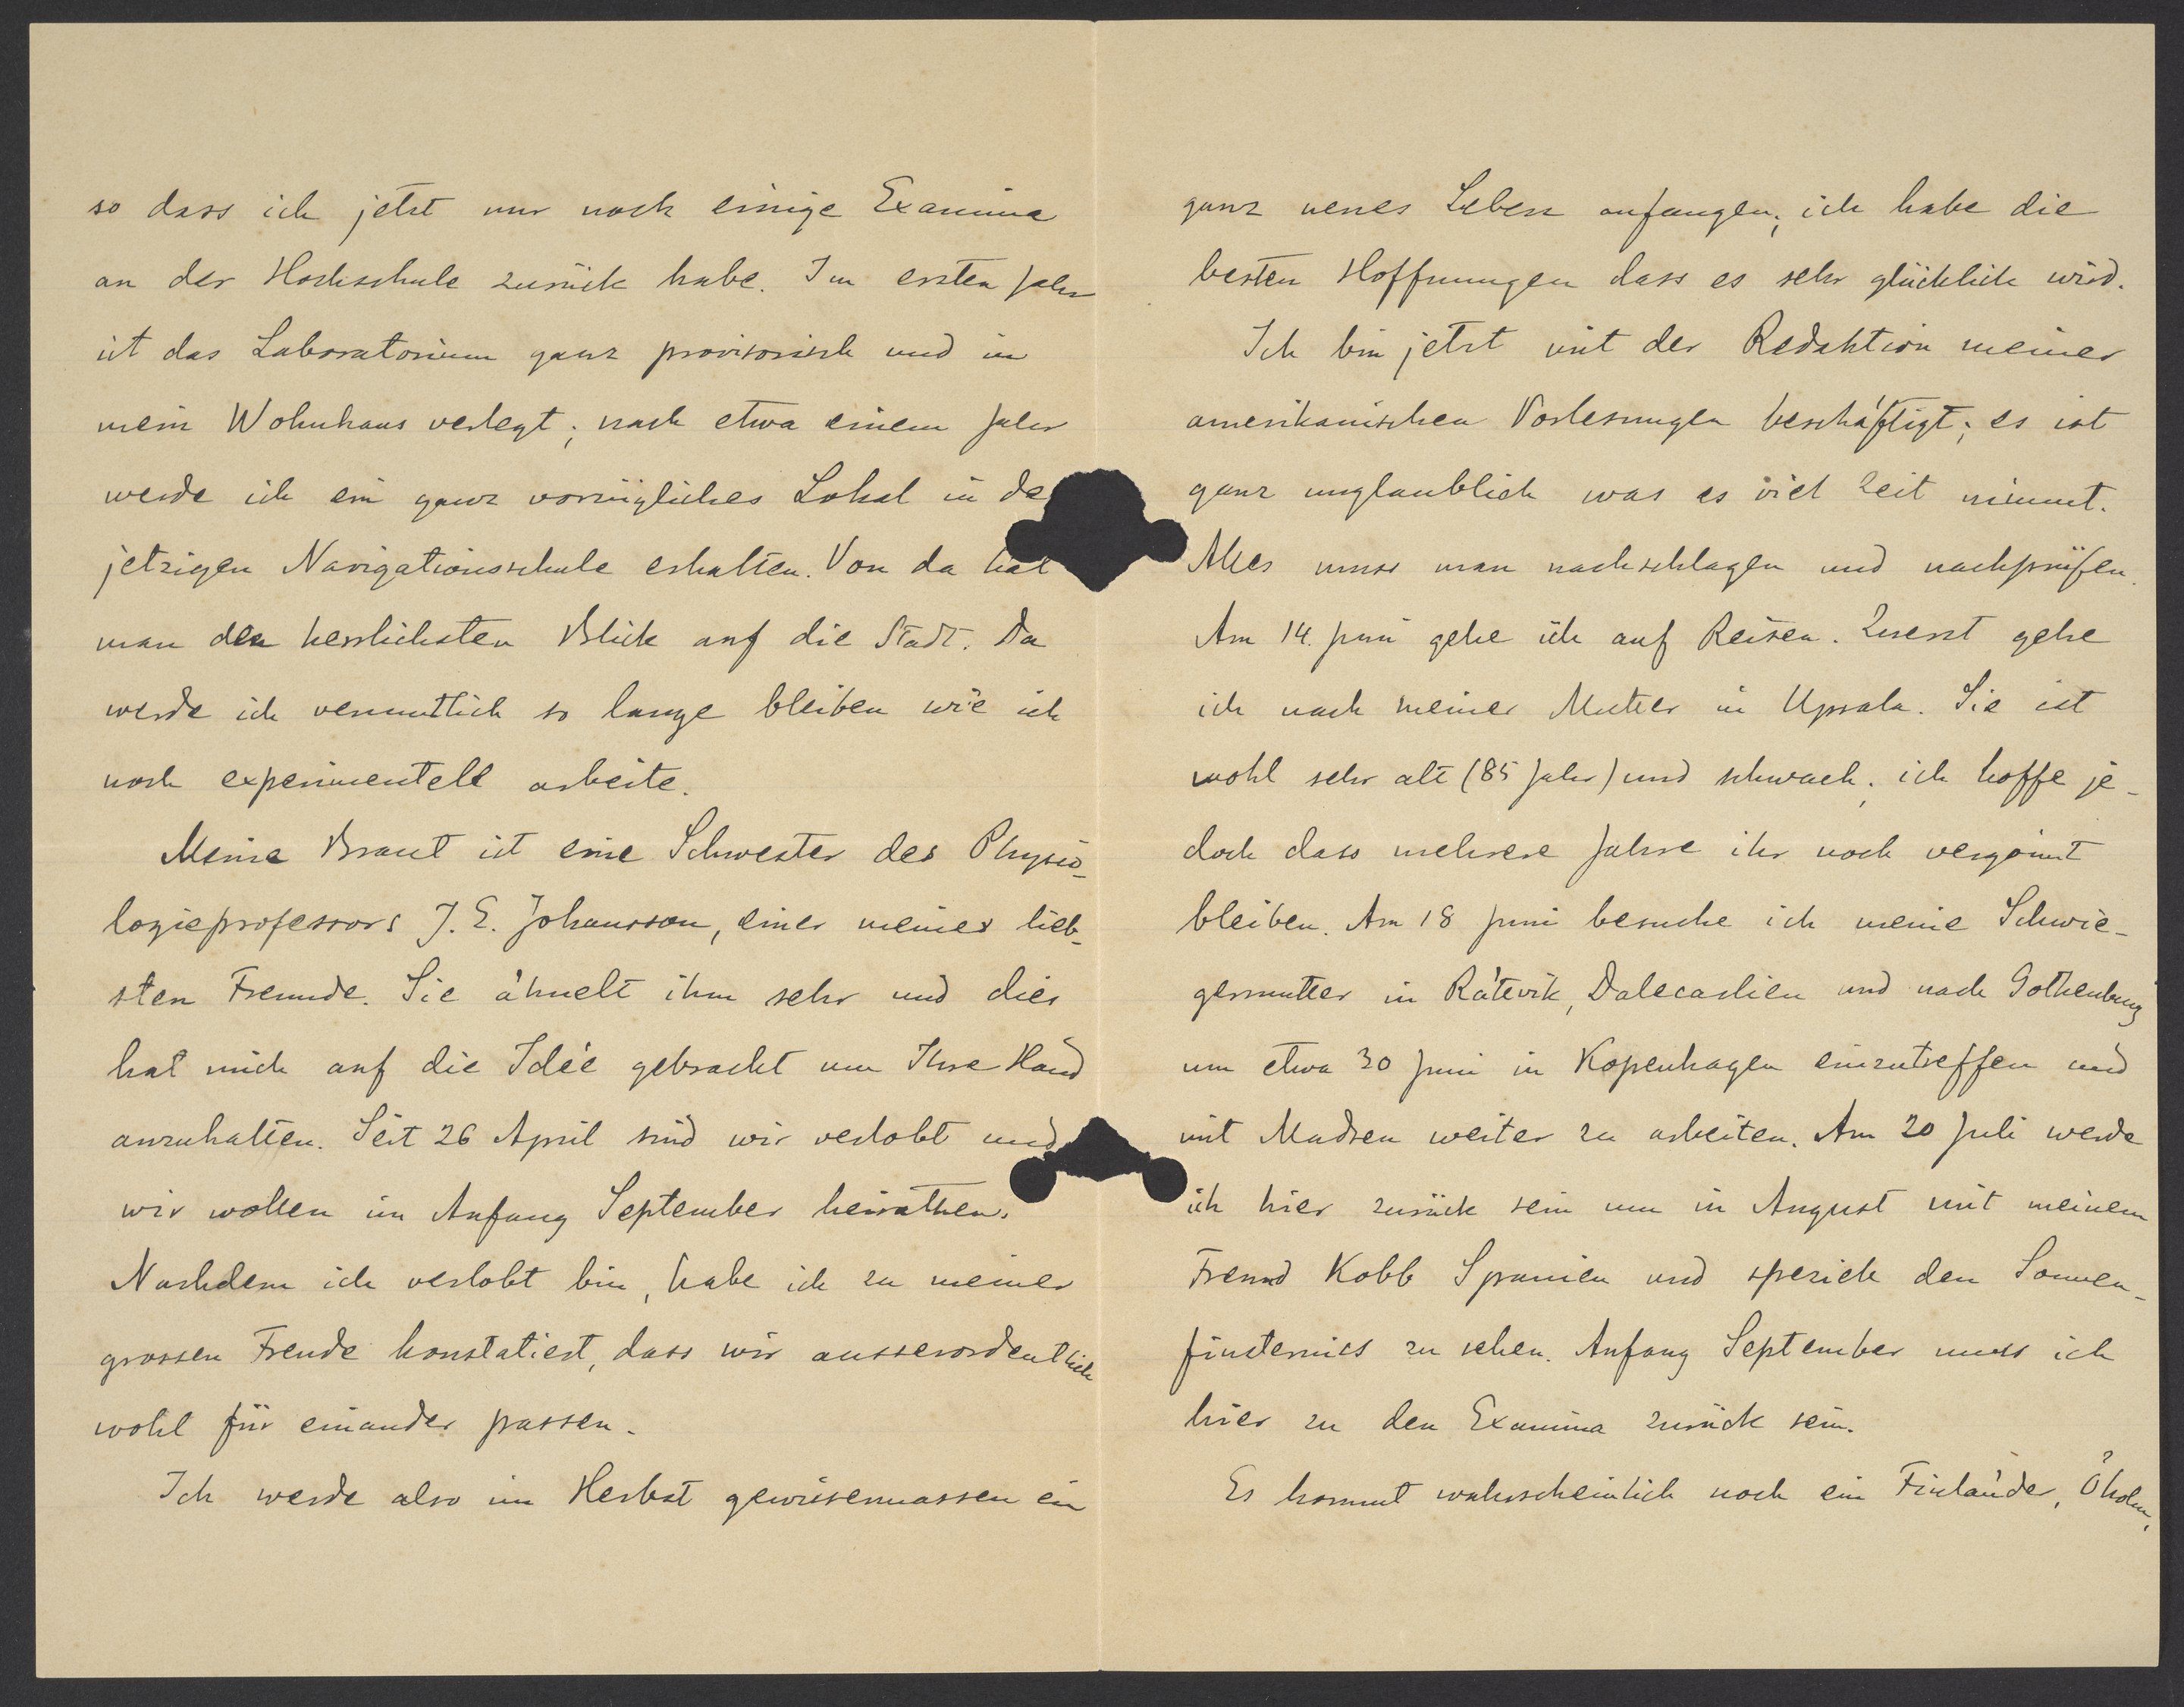 so dass ich jetzt nur noch einige Examina
an der Hochschule zurück habe. Im ersten Jahr
ist das Laboratorium ganz provisorisch und in
mein Wohnhaus verlegt; nach etwa einem Jahr
werde ich ein ganz vorzügliches Lokal in de
jetzigen Navigationsschule erhalten. Von da hat
man den herrlichsten Blick auf die Stadt. Da
werde ich vermutlich so lange bleiben wie ich
noch experimentell arbeite.
Meine Braut ist eine Schwester des Physio-
logieprofessors J. E. Johansson, einer meiner lieb-
sten Freunde. Sie ähnelt ihm sehr und dies
hat mich auf die Idée gebracht um Ihre Hand
anzuhalten. Seit 26 April sind wir verlobt und
wir wollen im Anfang September heirathen.
Nachdem ich verlobt bin, habe ich zu meiner
grossen Freude konstatiert, dass wir ausserordentlich
wohl für einander passen.
Ich werde also im Herbst gewissermassen ein
ganz neues Leben anfangen; ich habe die
besten Hoffnungen dass es sehr glücklich wird.
Ich bin jetzt mit der Redaktion meiner
amerikanischen Vorlesungen beschäftigt; es ist
ganz unglaublich was es viel Zeit nimmt.
Alles muss man nachschlagen und nachprüfen.
Am 14. Juni gehe ich auf Reisen. Zuerst gehe
ich nach meiner Mutter in Upsala. Sie ist
wohl sehr alt (85 Jahr) und schwach; ich hoffe je-
doch dass mehrere Jahre ihr noch vergönnt
bleiben. Am 18 Juni besuche ich meine Schwie-
germutter in Rätvik, Dalecarlien und nach Gothenburg
um etwa 30 Juni in Kopenhagen einzutreffen und
mit Madsen weiter zu arbeiten. Am 20 Juli werde
ich hier zurück sein um in August mit meinem
Freund Kobb Spanien und speziell den Sonnen-
finsterniss zu sehen. Anfang September muss ich
hier zu den Examina zurück sein.
Es kommt wahrscheinlich noch ein Finländer, Öholm,